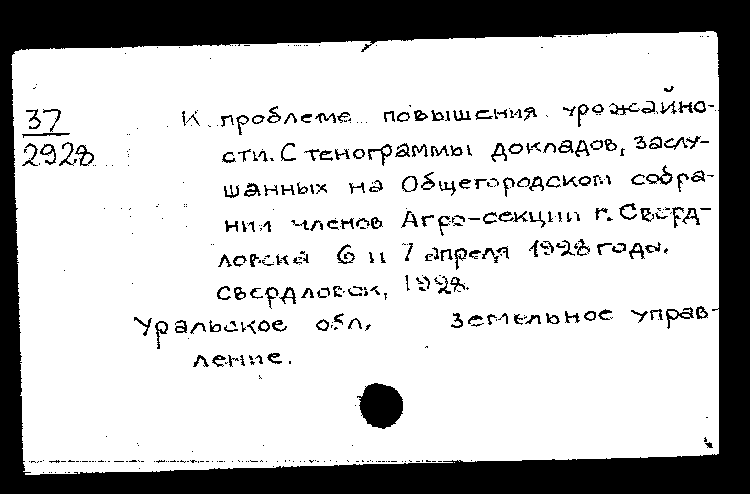 37
2928
К проблеме повышения урожайно-
сти. Стенограммы докладов, заслу-
шанных на Общегородском собра-
нии членов Агро-секции г. Сверд-
ловска 6 и 7 апреля 1928 года.
Свердловск, 1928
Уральское обл. Земельное управ-
ление.